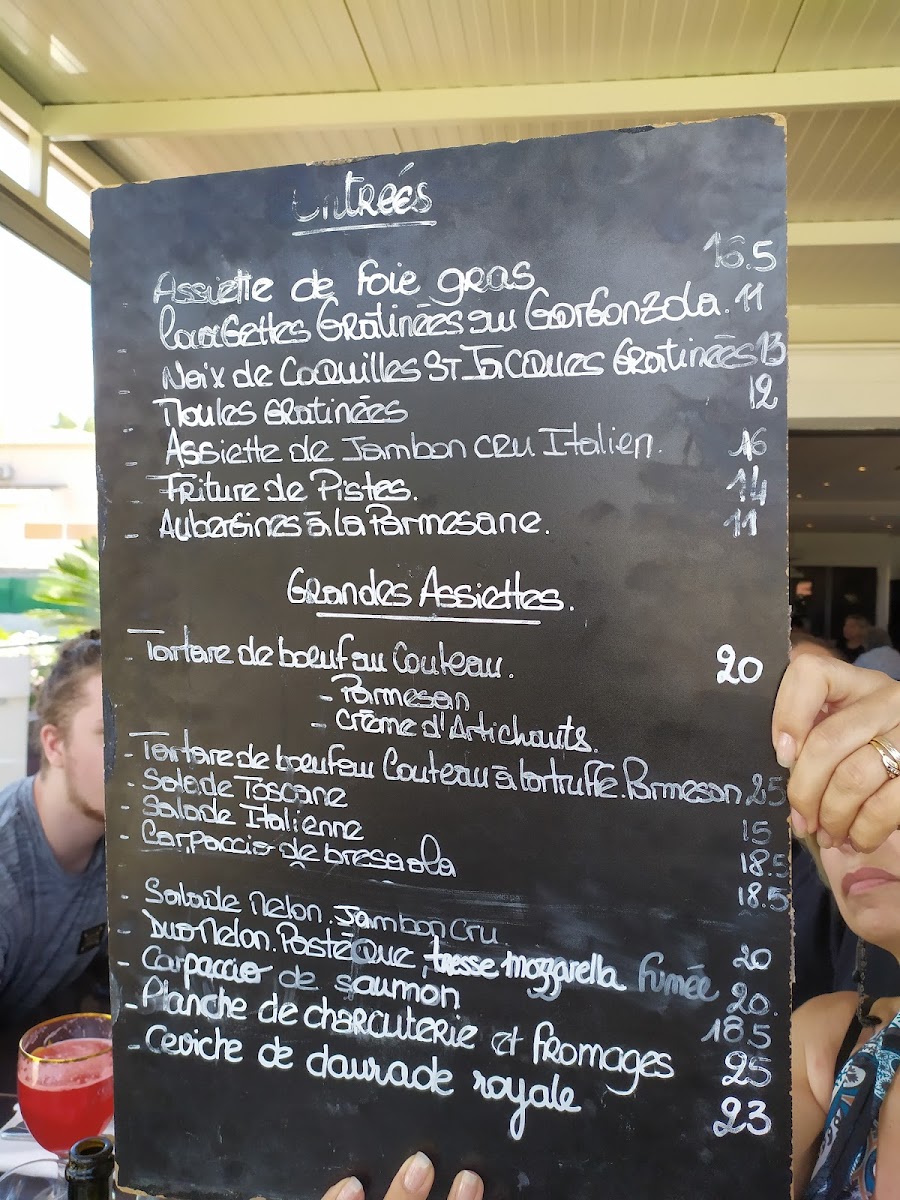 Entreés
Assiette de foie gras 16.5
- Courgettes Gratineés au Gorgonzola. 11
- Noix de Coquilles St Jacques Gratineés 13
- Moules Gratineés 12
- Assiette de Jambon cru Italien. 16
- Friture de Pistes. 14
- Aubergines à la Parmesane. 11
Grandes Assiettes.
- Tartare de boeuf au Couteau. 20
- Parmesan
- Crème d'Artichauts.
- Tartare de boeuf au Couteau à la truffe. Parmesan 25
- Salade Toscane 15
- Salade Italienne 18.5
- Carpaccio de bresaola 18.5
- Salade Melon. Jambon cru 20
- Duo Melon. Pastèque, tresse mozzarella fumée 20.
- Carpaccio de saumon 18.5
- Planche de charcuterie et fromages 25
- Ceviche de daurade royale 23